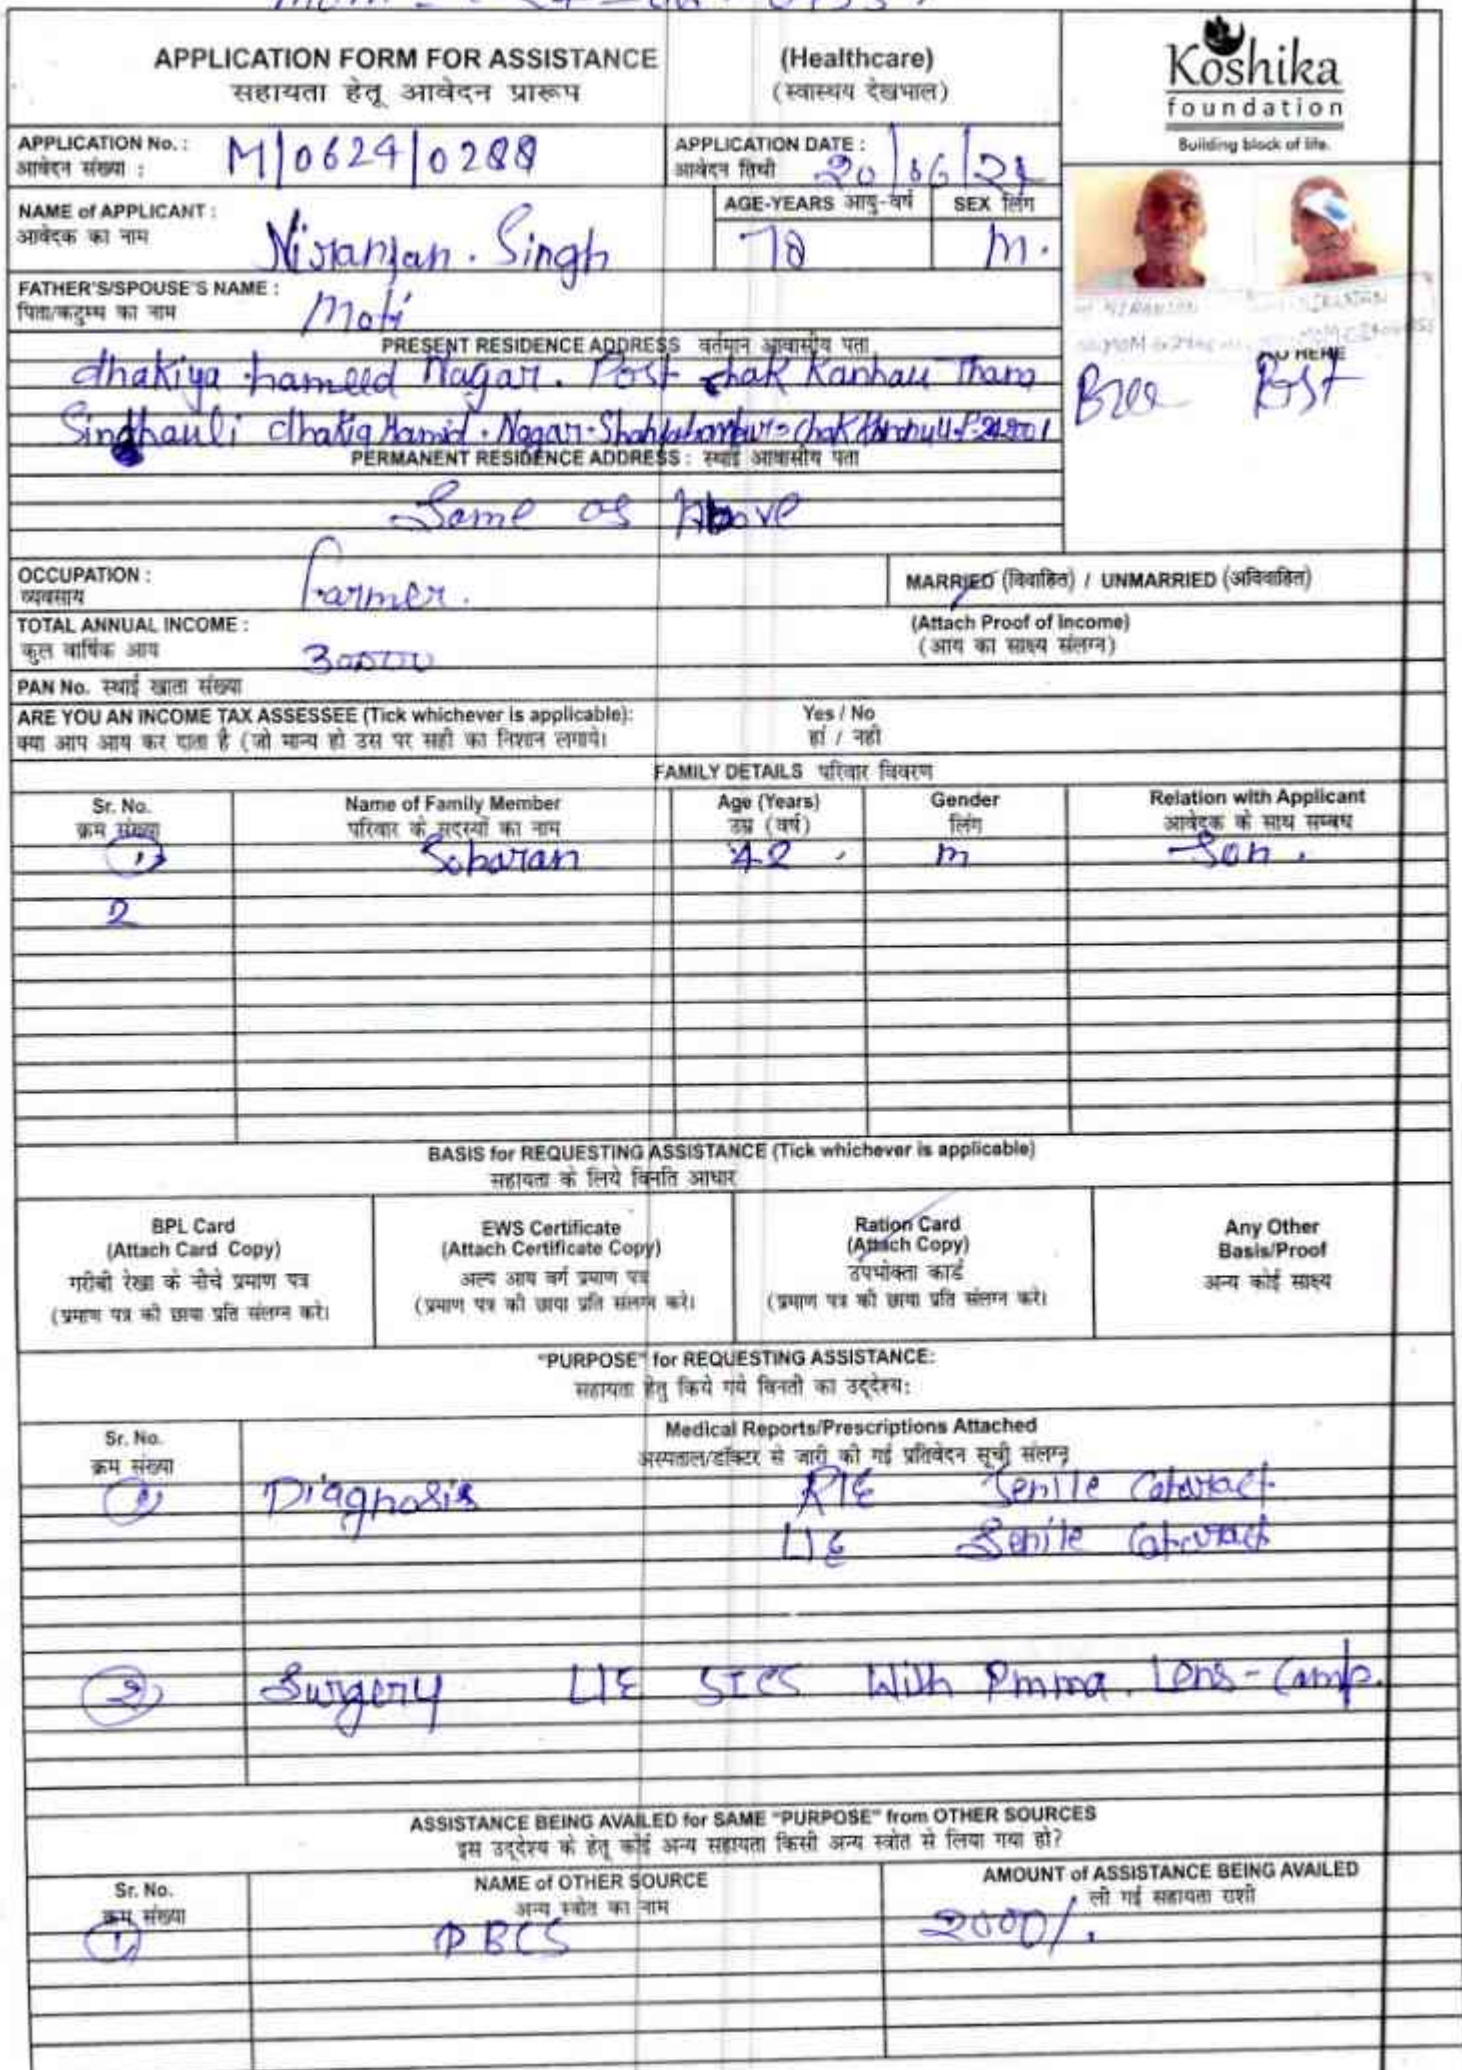 APPLICATION FORM FOR ASSISTANCE (Healthcare)
सहायता हेतू आवेदन प्रारूप (स्वास्थय देखभाल)
Koshika
foundation
Building block of life.
APPLICATION No. : M/0624/0288
आवेदन संख्या :
APPLICATION DATE :
आवेदन तिथी 20/06/24
NAME of APPLICANT :
आवेदक का नाम Niranjan. Singh
AGE-YEARS आयु-वर्ष SEX लिंग
78 M.
FATHER'S/SPOUSE'S NAME : Moti
पिता/कटुम्ब का नाम
PRESENT RESIDENCE ADDRESS वर्तमान आवासीय पता
dhakiya hameed Nagar. Post chak Kanhau Thana
Sindhauli dhakia Hamid. Nagar.
PERMANENT RESIDENCE ADDRESS : स्थाई आवासीय पता
Same as Above
Post
OCCUPATION : Farmer.
व्यवसाय
MARRIED (विवाहित) / UNMARRIED (अविवाहित)
TOTAL ANNUAL INCOME :
कुल वार्षिक आय
(Attach Proof of Income)
(आय का साक्ष्य संलग्न)
PAN No. स्थाई खाता संख्या
ARE YOU AN INCOME TAX ASSESSEE (Tick whichever is applicable): Yes / No
क्या आप आय कर दाता है (जो मान्य हो उस पर सही का निशान लगाये। हां / नही
FAMILY DETAILS परिवार विवरण
Sr. No. Name of Family Member Age (Years) Gender Relation with Applicant
क्रम संख्या परिवार के सदस्यों का नाम उम्र (वर्ष) लिंग आवेदक के साथ सम्बध
1) Sobaran 42 m Son.
2
BASIS for REQUESTING ASSISTANCE (Tick whichever is applicable)
सहायता के लिये विनति आधार
BPL Card
(Attach Card Copy)
गरीबी रेखा के नीचे प्रमाण पत्र
(प्रमाण पत्र की छाया प्रति संलग्न करे।
EWS Certificate
(Attach Certificate Copy)
अल्प आय वर्ग प्रमाण पत्र
(प्रमाण पत्र की छाया प्रति संलग्न करे।
Ration Card
(Attach Copy)
उपभोक्ता कार्ड
(प्रमाण पत्र की छाया प्रति संलग्न करे।
Any Other
Basis/Proof
अन्य कोई साक्ष्य
"PURPOSE" for REQUESTING ASSISTANCE:
सहायता हेतु किये गये विनती का उद्देश्य:
Sr. No. Medical Reports/Prescriptions Attached
क्रम संख्या अस्पताल/डॉक्टर से जारी की गई प्रतिवेदन सूची संलग्न
1 Diagnosis R/E Senile Cataract
L/E Senile Cataract
2 Surgery L/E SICS With Pmma. Lens-Camp.
ASSISTANCE BEING AVAILED for SAME "PURPOSE" from OTHER SOURCES
इस उद्देश्य के हेतू कोई अन्य सहायता किसी अन्य स्त्रोत से लिया गया हो?
Sr. No. NAME of OTHER SOURCE AMOUNT of ASSISTANCE BEING AVAILED
क्रम संख्या अन्य स्त्रोत का नाम ली गई सहायता राशी
1) DBCS 2000/.